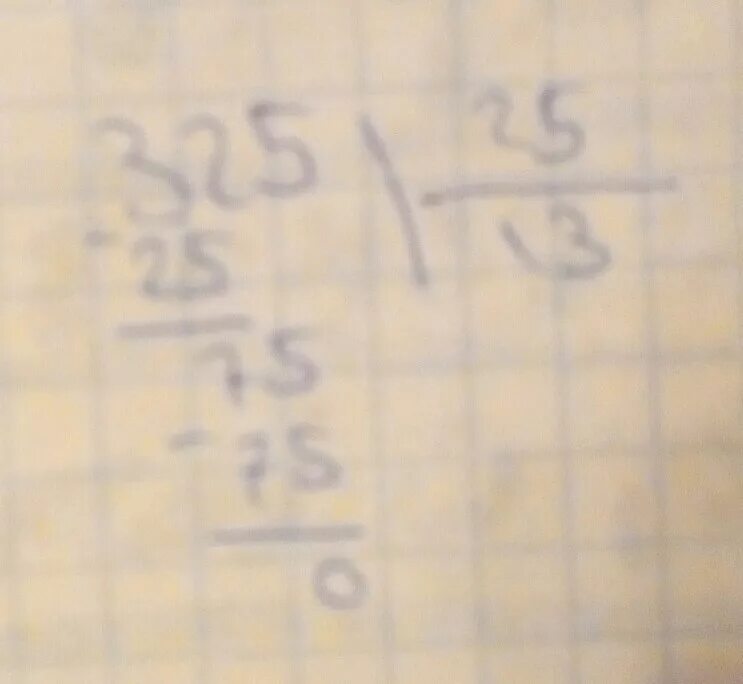 325 | 25
- 25 13
75
- 75
0